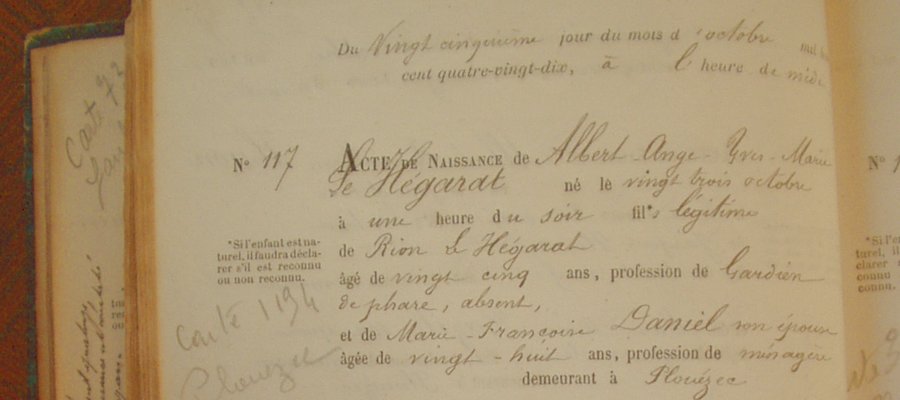 Du Vingt cinquième jour du mois d'octobre mil
cent quatre-vingt-dix, à l'heure de midi
N° 117
ACTE DE NAISSANCE de Albert-Ange-Yves-Marie
Le Hégarat né le vingt trois octobre
à une heure du soir fils légitime
de Rion Le Hégarat
âgé de vingt cinq ans, profession de Gardien
de phare, absent,
et de Marie-Françoise Daniel son épouse
âgée de vingt-huit ans, profession de ménagère
demeurant à Plouézec
*Si l'enfant est na-
turel, il faudra décla-
rer s'il est reconnu
ou non reconnu.
Carte 1194
Plouézec
Carte 92
N°
*Si l'en
turel, il
clarer
connu
connu.